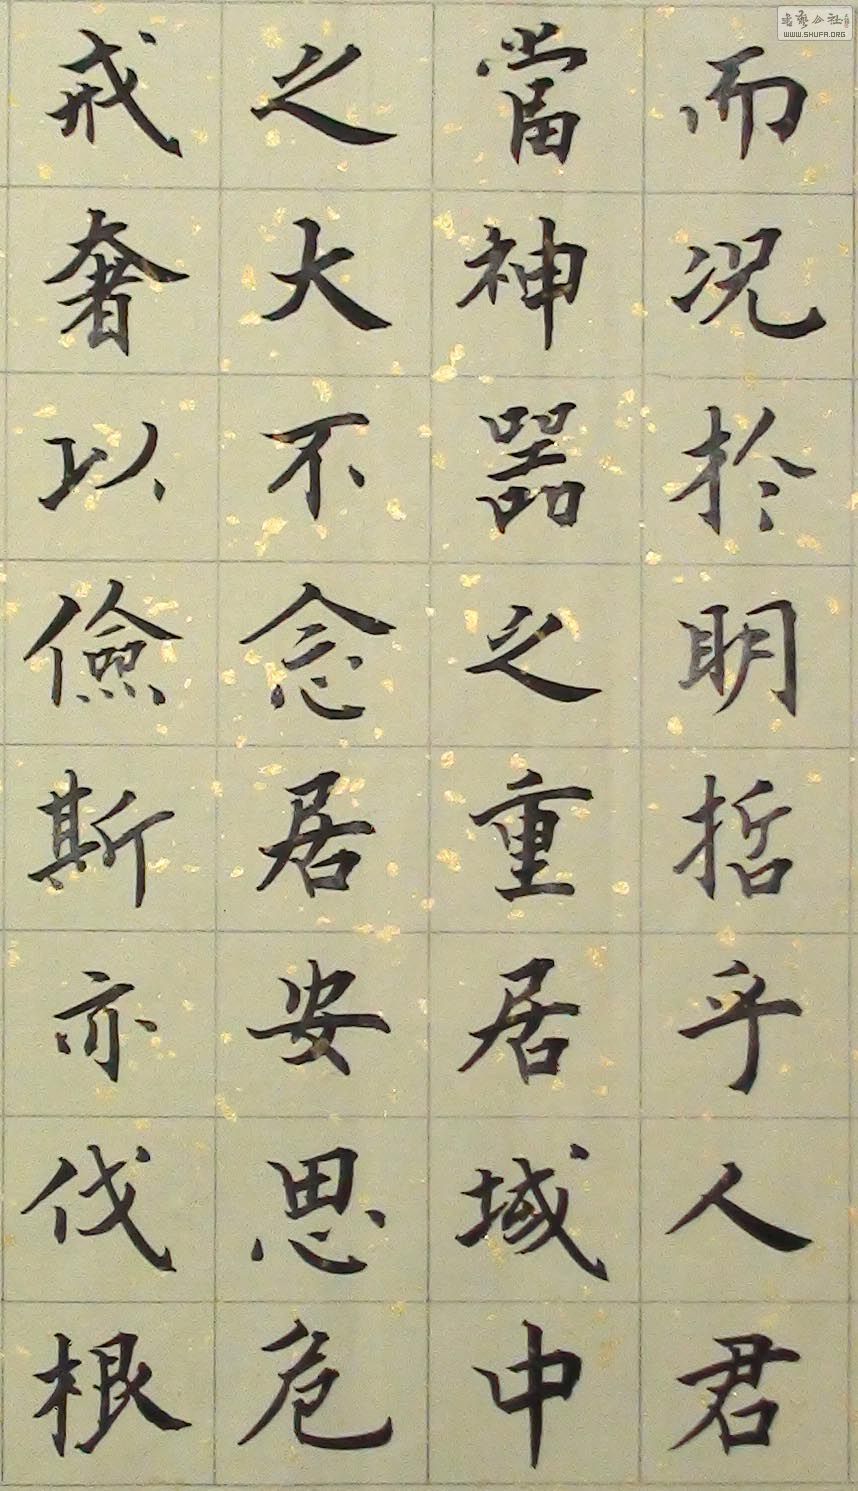 而况於明哲乎人君
當神器之重居域中
之大不念居安思危
戒奢以儉斯亦伐根
WWW.SHUFA.ORG